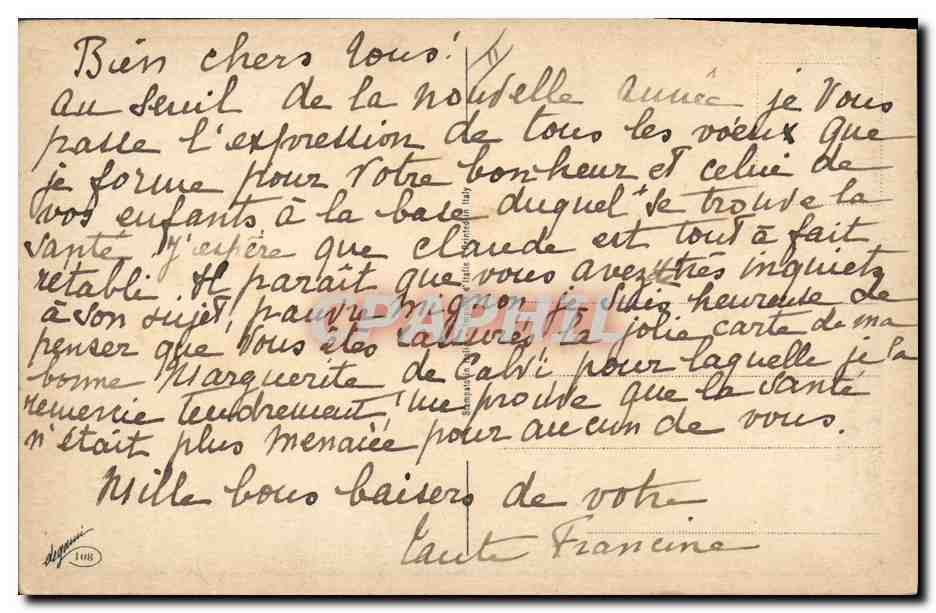 Bien chers tous!
au seuil de la nouvelle année je vous
passe l'expression de tous les vœux que
je forme pour votre bonheur et celui de
vos enfants à la base duquel se trouve la
santé j'espère que claude est tout à fait
rétabli. Il paraît que vous avez été très inquiets
à son sujet, pauvre mignon, je suis heureuse de
penser que vous êtes rassurés la jolie carte de ma
bonne Marguerite de Calvi pour laquelle je la
remercie tendrement, me prouve que la santé
n'était plus menacée pour aucun de vous.
Mille bons baisers de votre
tante Francine
Printed in Italy
degami
108
CPAPHIL